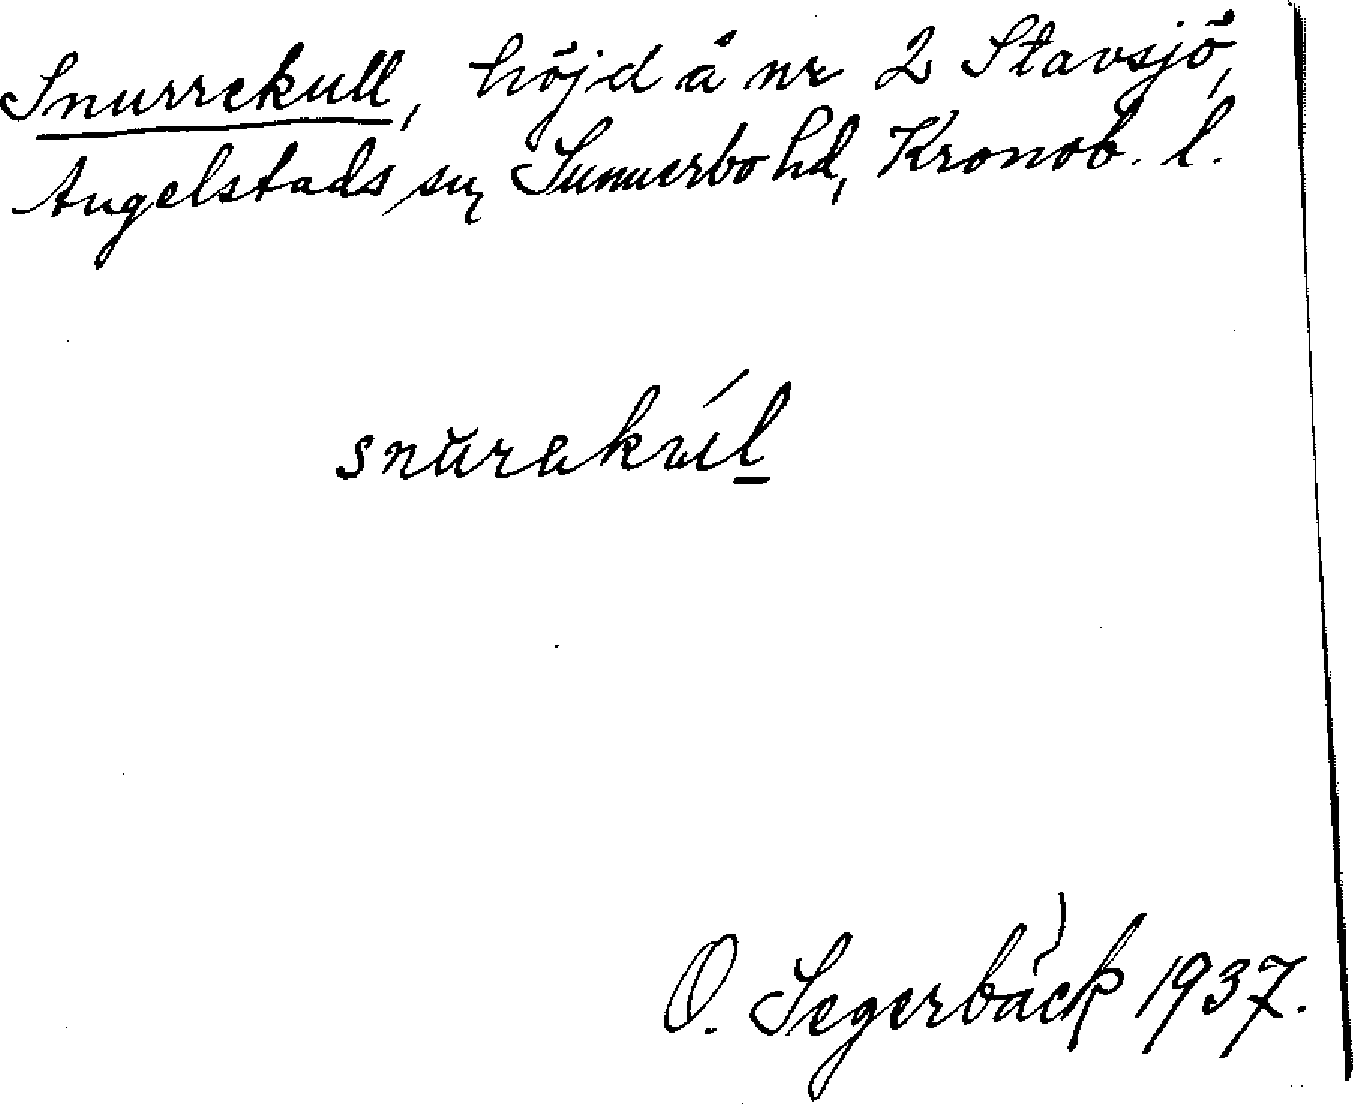 Snurrekull, höjd å nr 2 Stavsjö,
Angelstads sn, Sunnerbo hd, Kronob. l.
snurekúl
O. Segerbäck 1937.